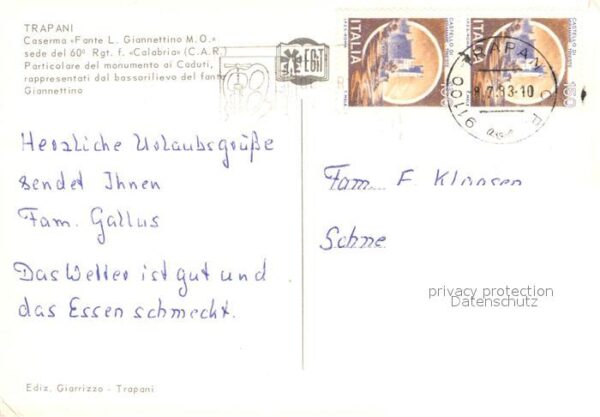 TRAPANI
Caserma «Fante L. Giannettino M.O.»
sede del 60º Rgt. f. «Calabria» (C.A.R.)
Particolare del monumento ai Caduti,
rappresentati dal bassorilievo del fante
Giannettino
ITALIA
ITALIA
CASTELLO DI
91100 TRAPANI C.P.
8.7.93-10
Herzliche Urlaubsgrüße
sendet Ihnen
Fam. Gallus
Das Wetter ist gut und
das Essen schmeckt.
Fam. F. Klaasen
Schne
privacy protection
Datenschutz
Ediz. Giarrizzo - Trapani